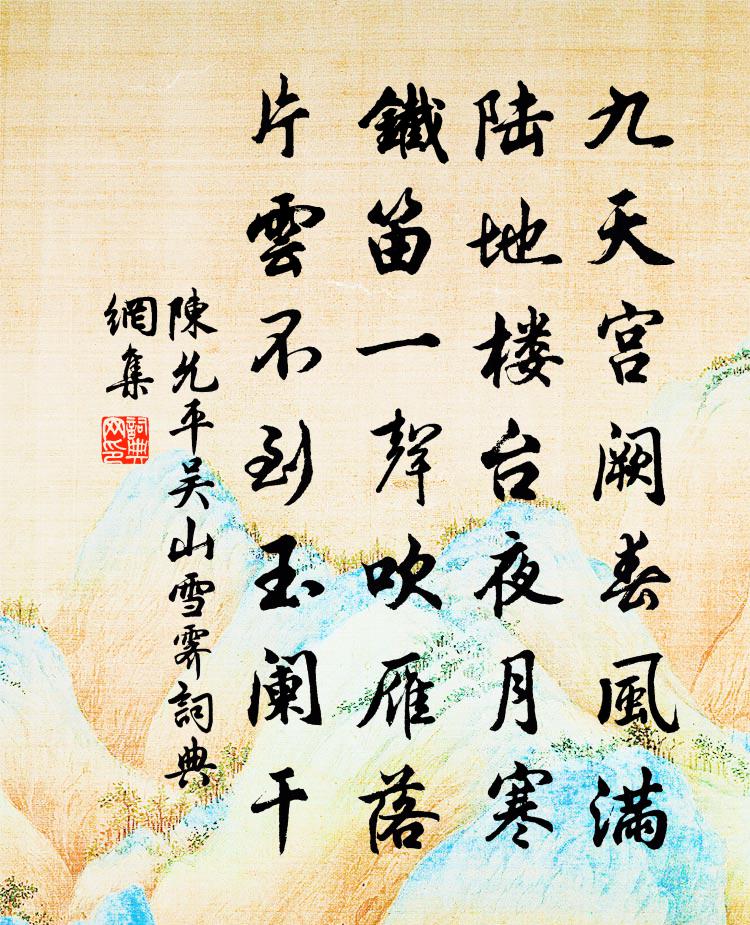 九天宫阙春風滿
陆地楼台夜月寒
鐵笛一聲吹雁落
片雲不到玉阑干
陳允平吴山雪霽詞典
網集
詞典
网印